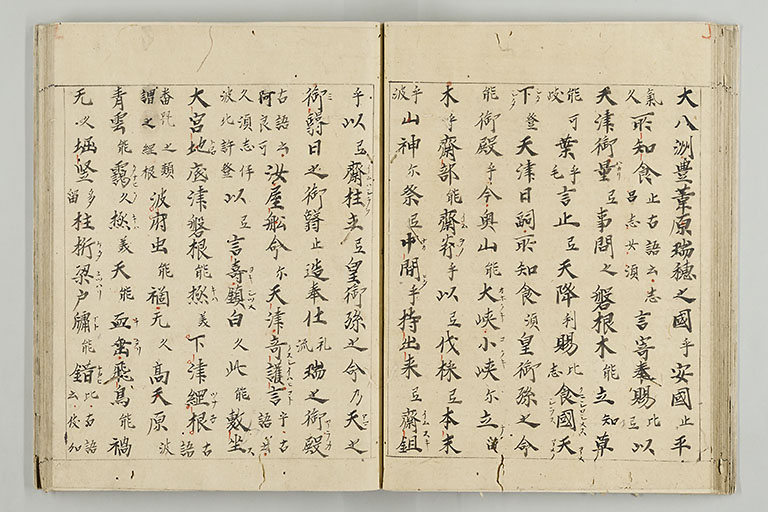 大八洲豊葦原瑞穂之國乎安國止平
氣久所知食止古語云志呂志女須言寄奉賜比弖以
天津御量弖事問之磐根木能立知草
能可岐葉乎毛言止弖天降利賜比志食國天
下登天津日嗣所知食須皇御孫之命
能御殿乎今奥山能大峡小峡尓立留
木乎齋部能齋斧乎以弖伐採弖本末
乎波山神尓祭弖中間乎持出来弖齋鉏
乎以弖齋柱立弖皇御孫之命乃天之
御翳日之御翳止造奉仕礼流瑞之御殿
古語云阿良可汝屋舩命尓天津奇護言乎古語云
久須志伊波比許登以弖言壽鎮白久此能敷坐
大宮地底津磐根能極美下津綱根古語
番縄之類謂之綱根波府虫能禍无久高天原波
青雲能靄久極美天能血垂飛鳥能禍
无久堀竪多留柱桁梁戸牖能錯比古語云伎加比